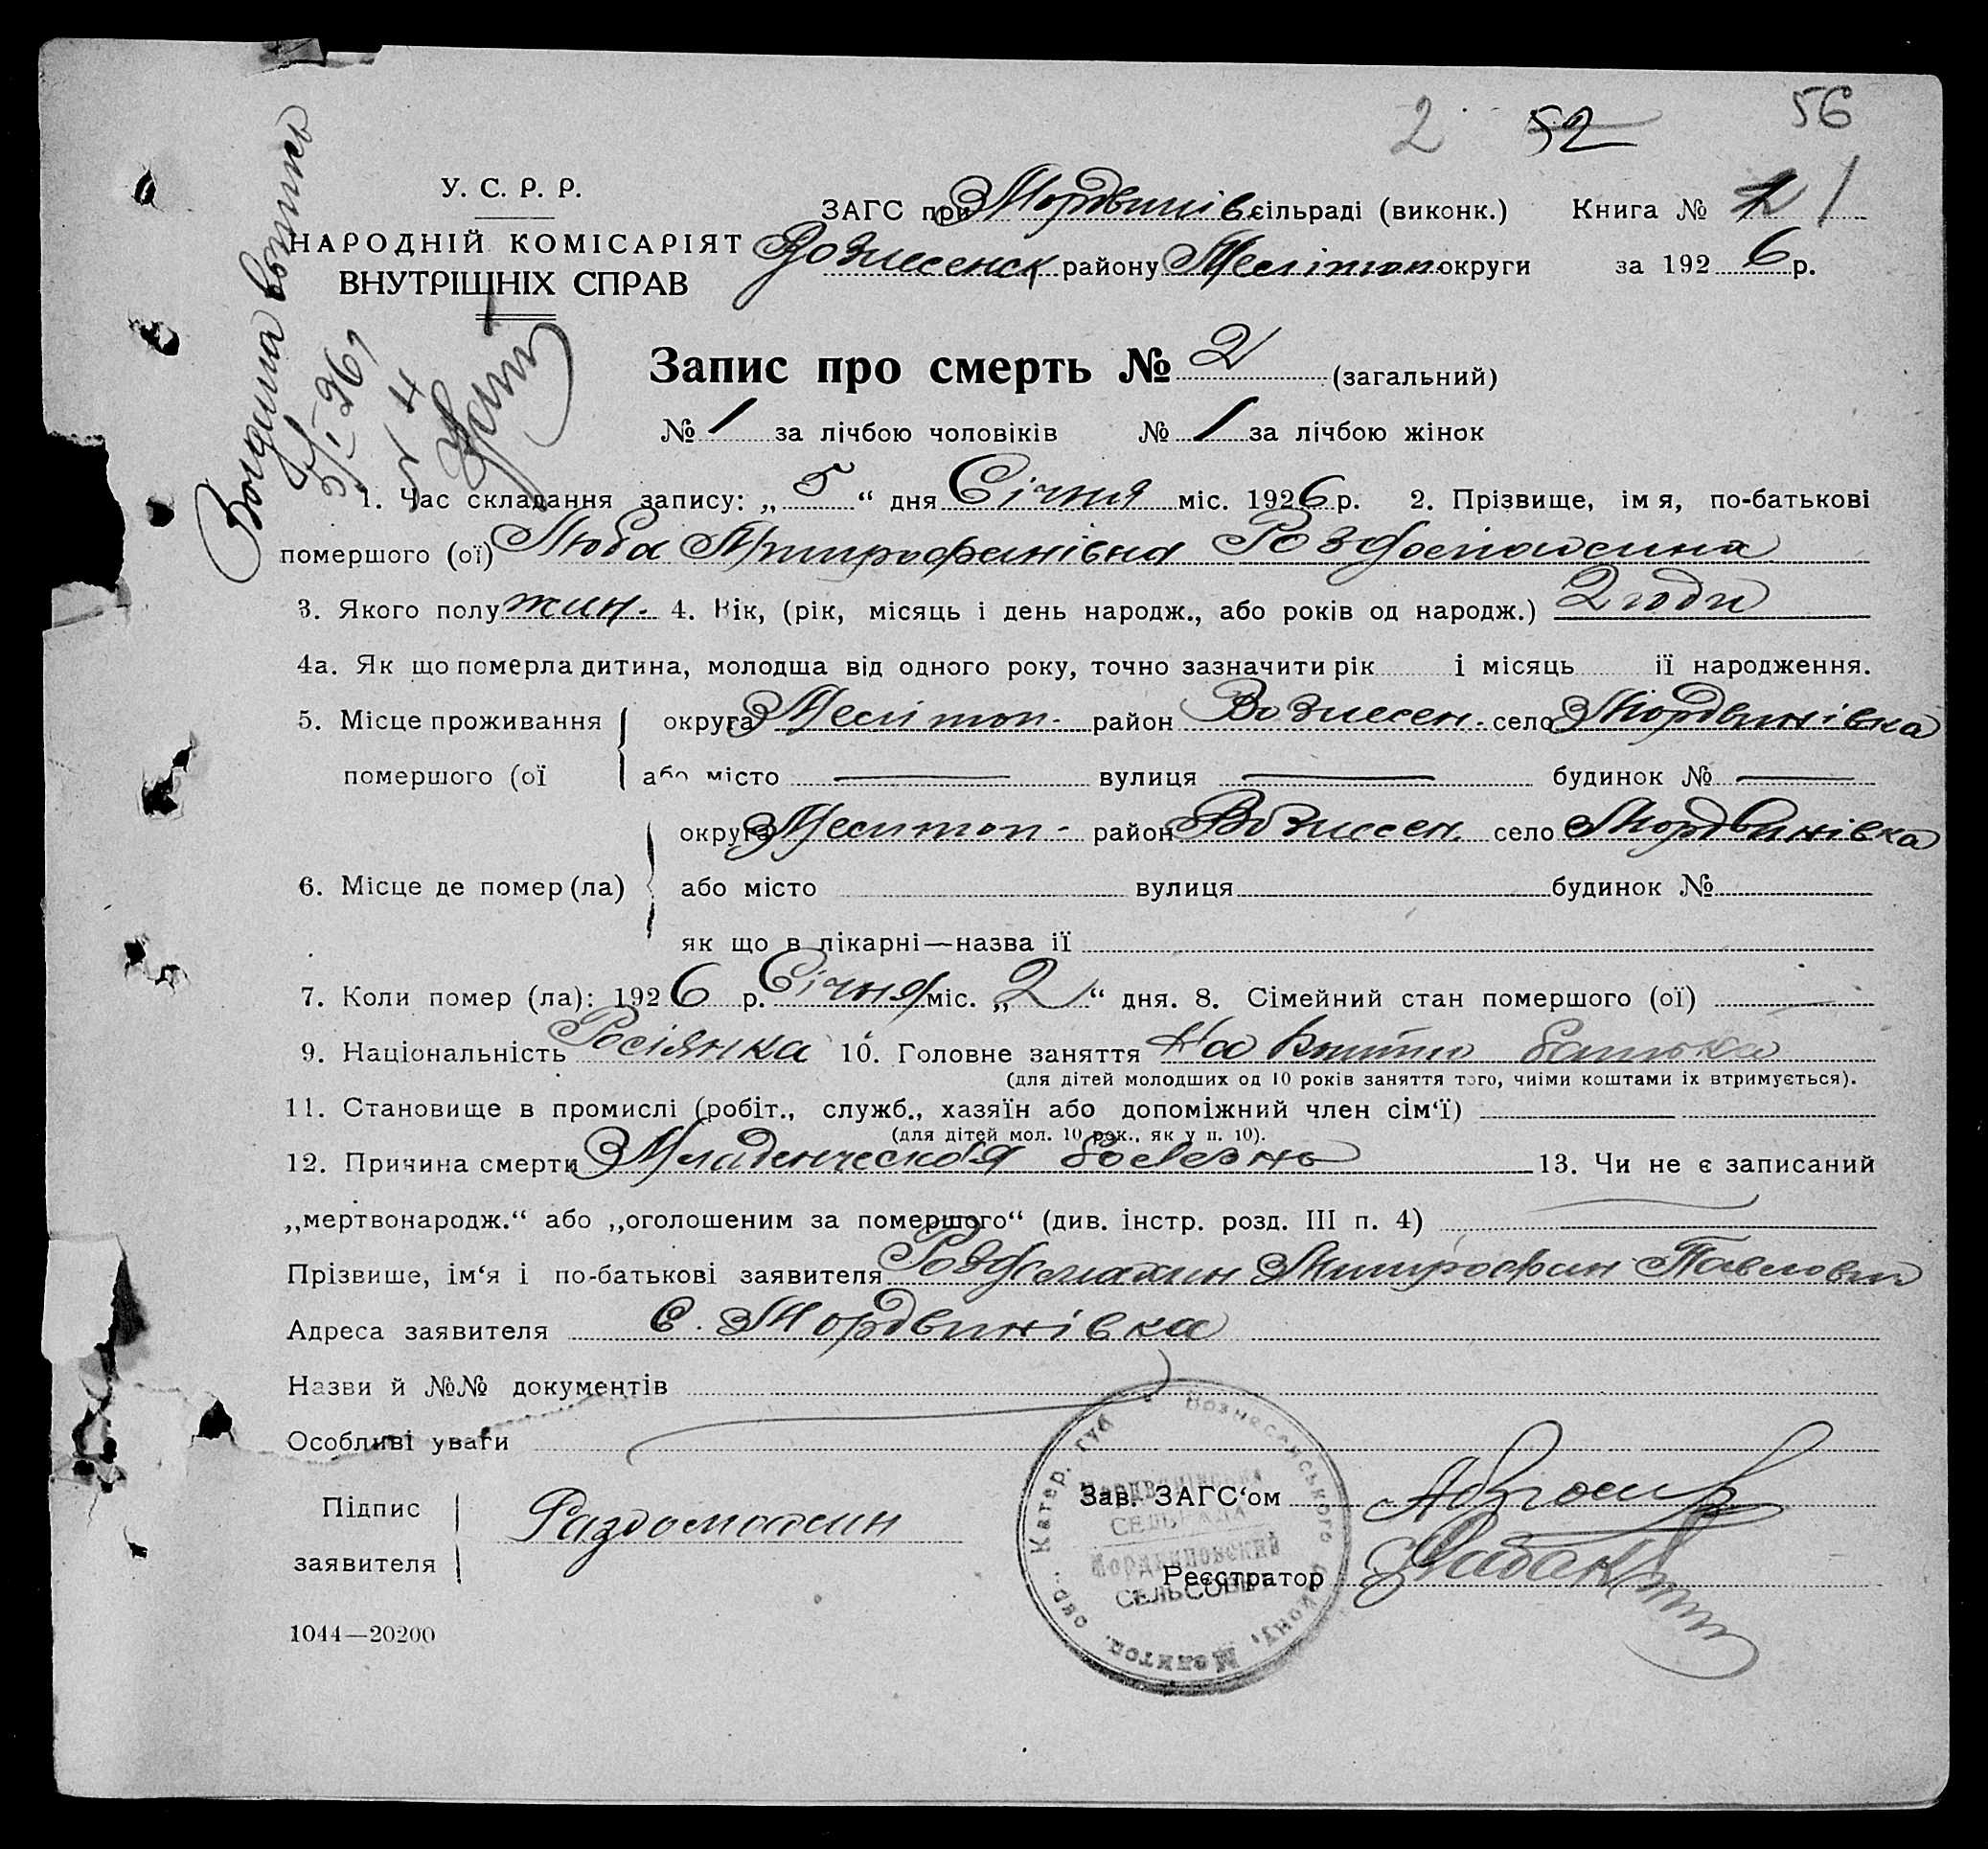 2 52 56
У. С. Р. Р.
ЗАГС при Мордвинів. сільраді (виконк.) Книга № 1
НАРОДНІЙ КОМІСАРІЯТ
Вознесенск району Мелітоп округи за 1926 р.
ВНУТРІШНІХ СПРАВ
Запис про смерть № 2 (загальний)
№ 1 за лічбою чоловіків № 1 за лічбою жінок
1. Час складання запису: „5“ дня Січня міс. 1926 р. 2. Прізвище, імя, по-батькові
помершого (ої) Люба Митрофанівна
3. Якого полу жин. 4. Вік, (рік, місяць і день народж., або років од народж.) 2 годи
4а. Як що померла дитина, молодша від одного року, точно зазначити рік і місяць її народження.
5. Місце проживання округа Мелітоп. район Вознесен. село Мордвинівка
помершого (ої або місто — вулиця — будинок № —
округа Мелитоп. район Вознесен. село Мордвинівка
6. Місце де помер (ла) або місто вулиця будинок №
як що в лікарні—назва її
7. Коли помер (ла): 1926 р. Січня міс. „2“ дня. 8. Сімейний стан помершого (ої) —
9. Національність Росіянка 10. Головне заняття На батька
(для дітей молодших од 10 років заняття того, чиїми коштами їх втримується).
11. Становище в промислі (робіт., служб., хазяїн або допоміжний член сім‘ї) —
(для дітей мол. 10 рок., як у п. 10).
12. Причина смерти Младенческая болезнь 13. Чи не є записаний
„мертвонародж.“ або „оголошеним за помершого“ (див. інстр. розд. III п. 4) —
Прізвише, ім‘я і по-батькові заявителя Митрофан Павлович
Адреса заявителя С. Мордвинівка
Назви й №№ документів
Особливі уваги
Підпис
заявителя
Раздомахин
Зав. ЗАГС‘ом
Реєстратор
Вознесенського Мелитоп. окр. Катер. губ.
СЕЛЬРАДА
Мордвиновский
СЕЛЬСОВЕТ
1044—20200